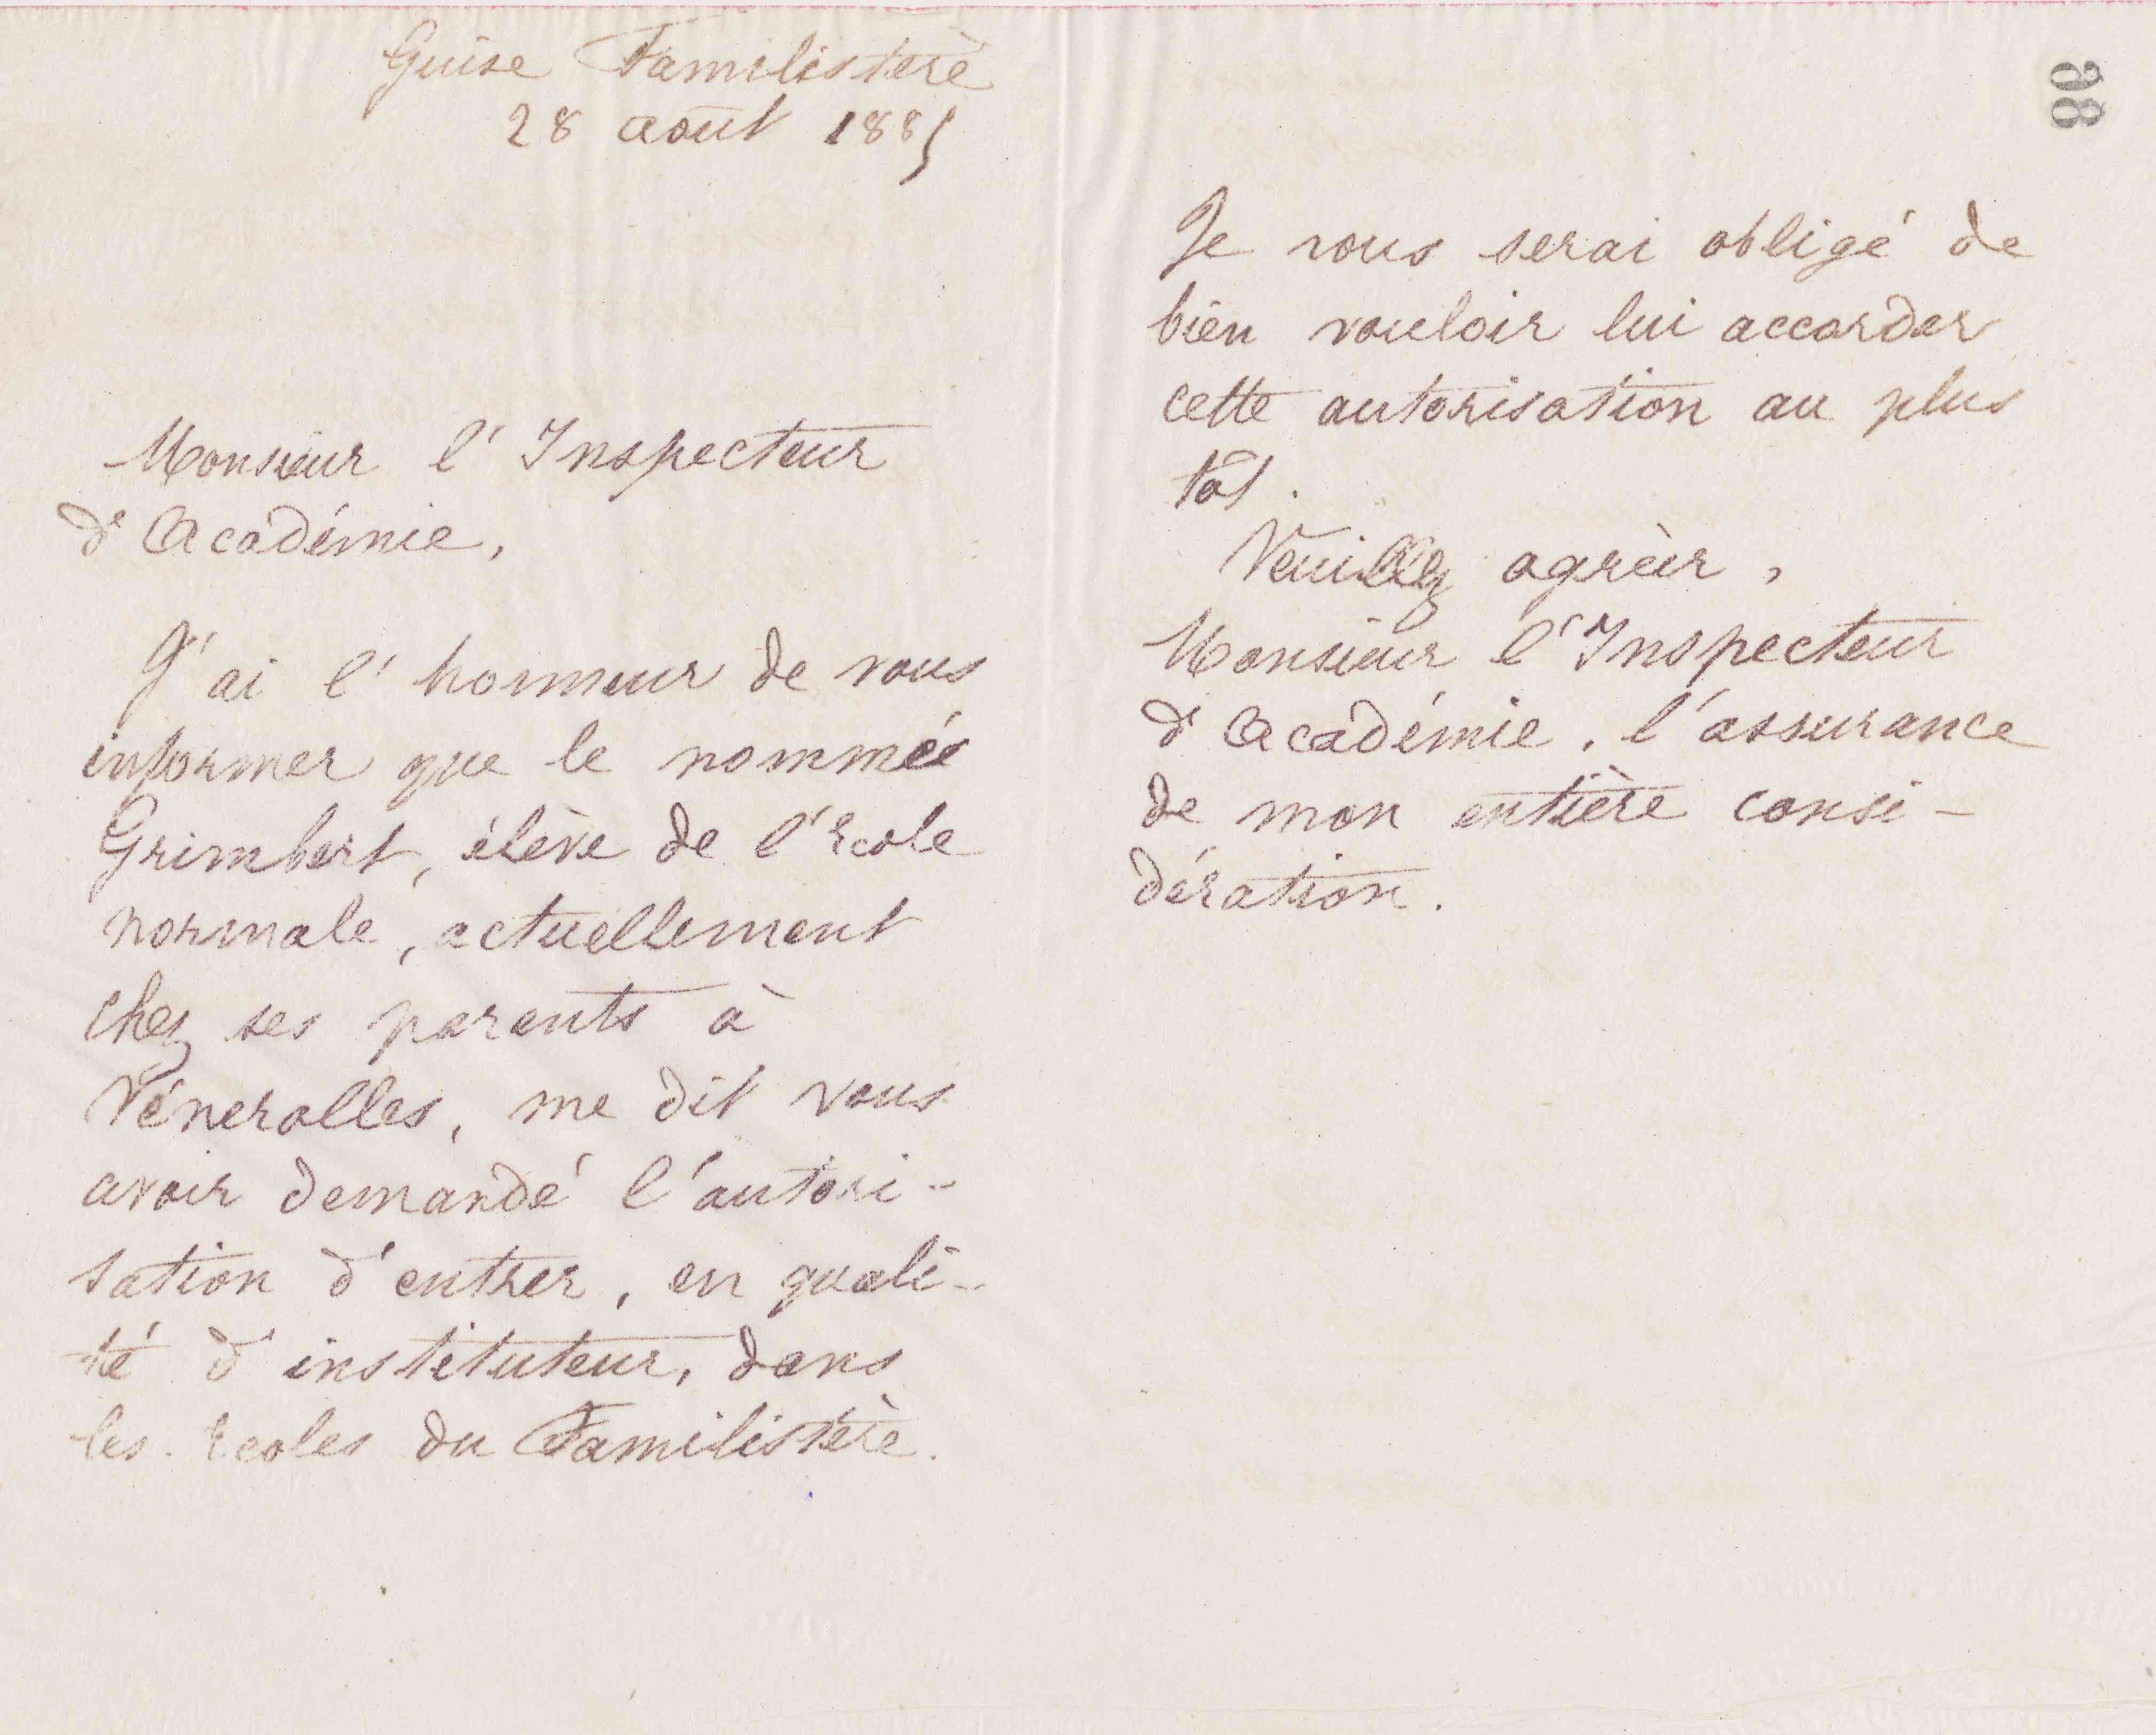 Guise Familistère
28 août 1885
Monsieur l'Inspecteur
d'Académie,
J'ai l'honneur de vous
informer que le nommé
Grimbert, élève de l'Ecole
normale, actuellement
chez ses parents à
Vénerolles, me dit vous
avoir demandé l'autori-
sation d'entrer, en quali-
té d'instituteur, dans
les Ecoles du Familistère.
98
Je vous serai obligé de
bien vouloir lui accorder
cette autorisation au plus
tôt.
Veuillez agréer,
Monsieur l'Inspecteur
d'Académie, l'assurance
de mon entière consi-
dération.